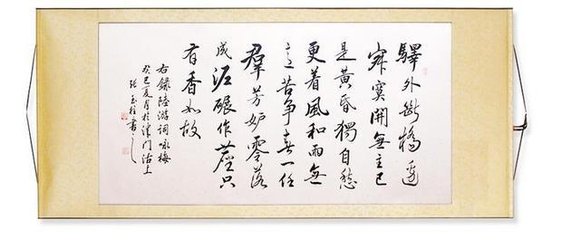 驛外斷橋邊
寂寞開無主已
是黃昏獨自愁
更着風和雨無
意苦争春一任
羣芳妒零落
成泥碾作塵只
有香如故
右錄陸游詞詠梅
癸巳夏月於津門沽上
玉 書